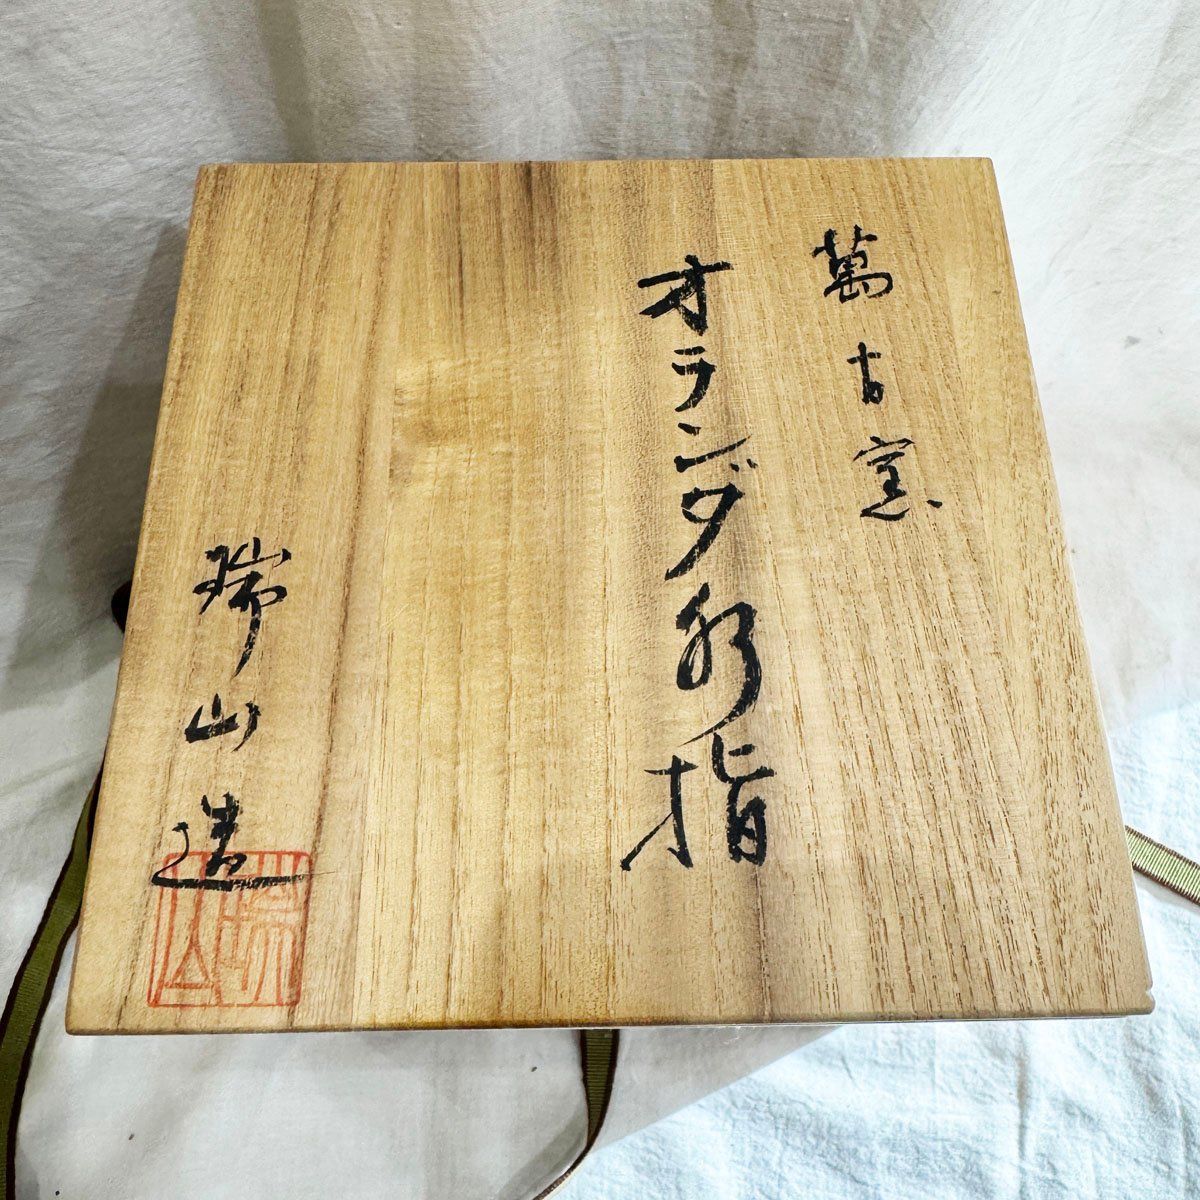 萬古窯
オランダ水指
瑞山造
瑞山